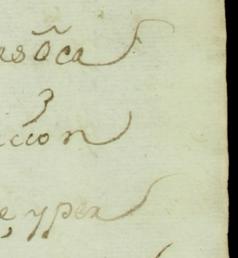 asõca
3
ccion
e, y per